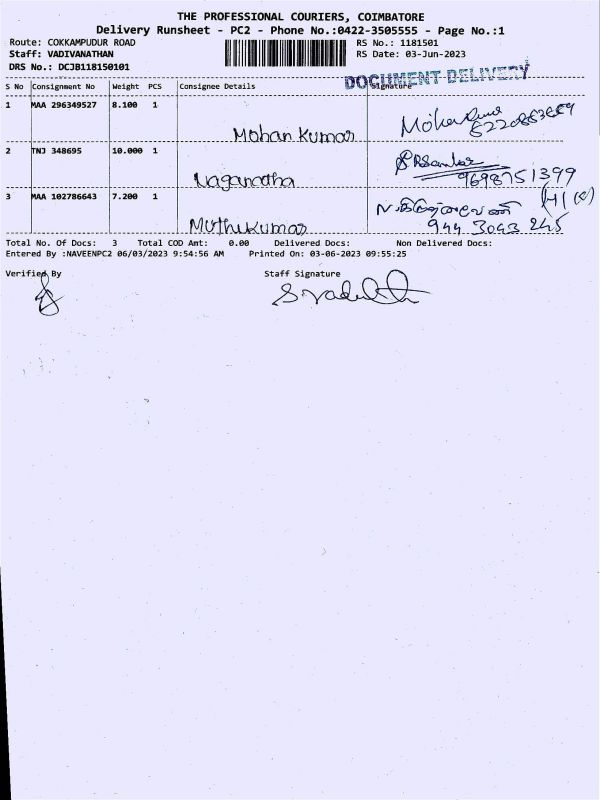 THE PROFESSIONAL COURIERS, COIMBATORE
Delivery Runsheet - PC2 - Phone No.:0422-3505555 - Page No.:1
Route: COKKAMPUDUR ROAD RS No.: 1181501
Staff: VADIVANATHAN RS Date: 03-Jun-2023
DRS No.: DCJB118150101
DOCUMENT DELIVERY
S No Consignment No Weight PCS Consignee Details Signature
1 MAA 296349527 8.100 1
Mohan Kumar
2 TNJ 348695 10.000 1
Naganatha 9698751399
3 MAA 102786643 7.200 1
Muthukumar 944 3043 245
Total No. Of Docs: 3 Total COD Amt: 0.00 Delivered Docs: Non Delivered Docs:
Entered By :NAVEENPC2 06/03/2023 9:54:56 AM Printed On: 03-06-2023 09:55:25
Verified By Staff Signature